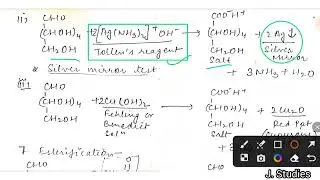 ii) CHO (CHOH)4 CH2OH + 2[Ag(NH3)2]+OH- Tollen's reagent → COO-H+ (CHOH)4 CH2OH Salt + 2Ag↓ Silver Mirror
* Silver mirror test. + 3NH3 + H2O
iii) CHO (CHOH)4 CH2OH + 2Cu(OH)2 Fehling or Benedict Soln → COO-H+ (CHOH)4 CH2OH Salt + 2Cu2O Red Ppt
+ 3
7. Esterification-
CHO
J. Studies